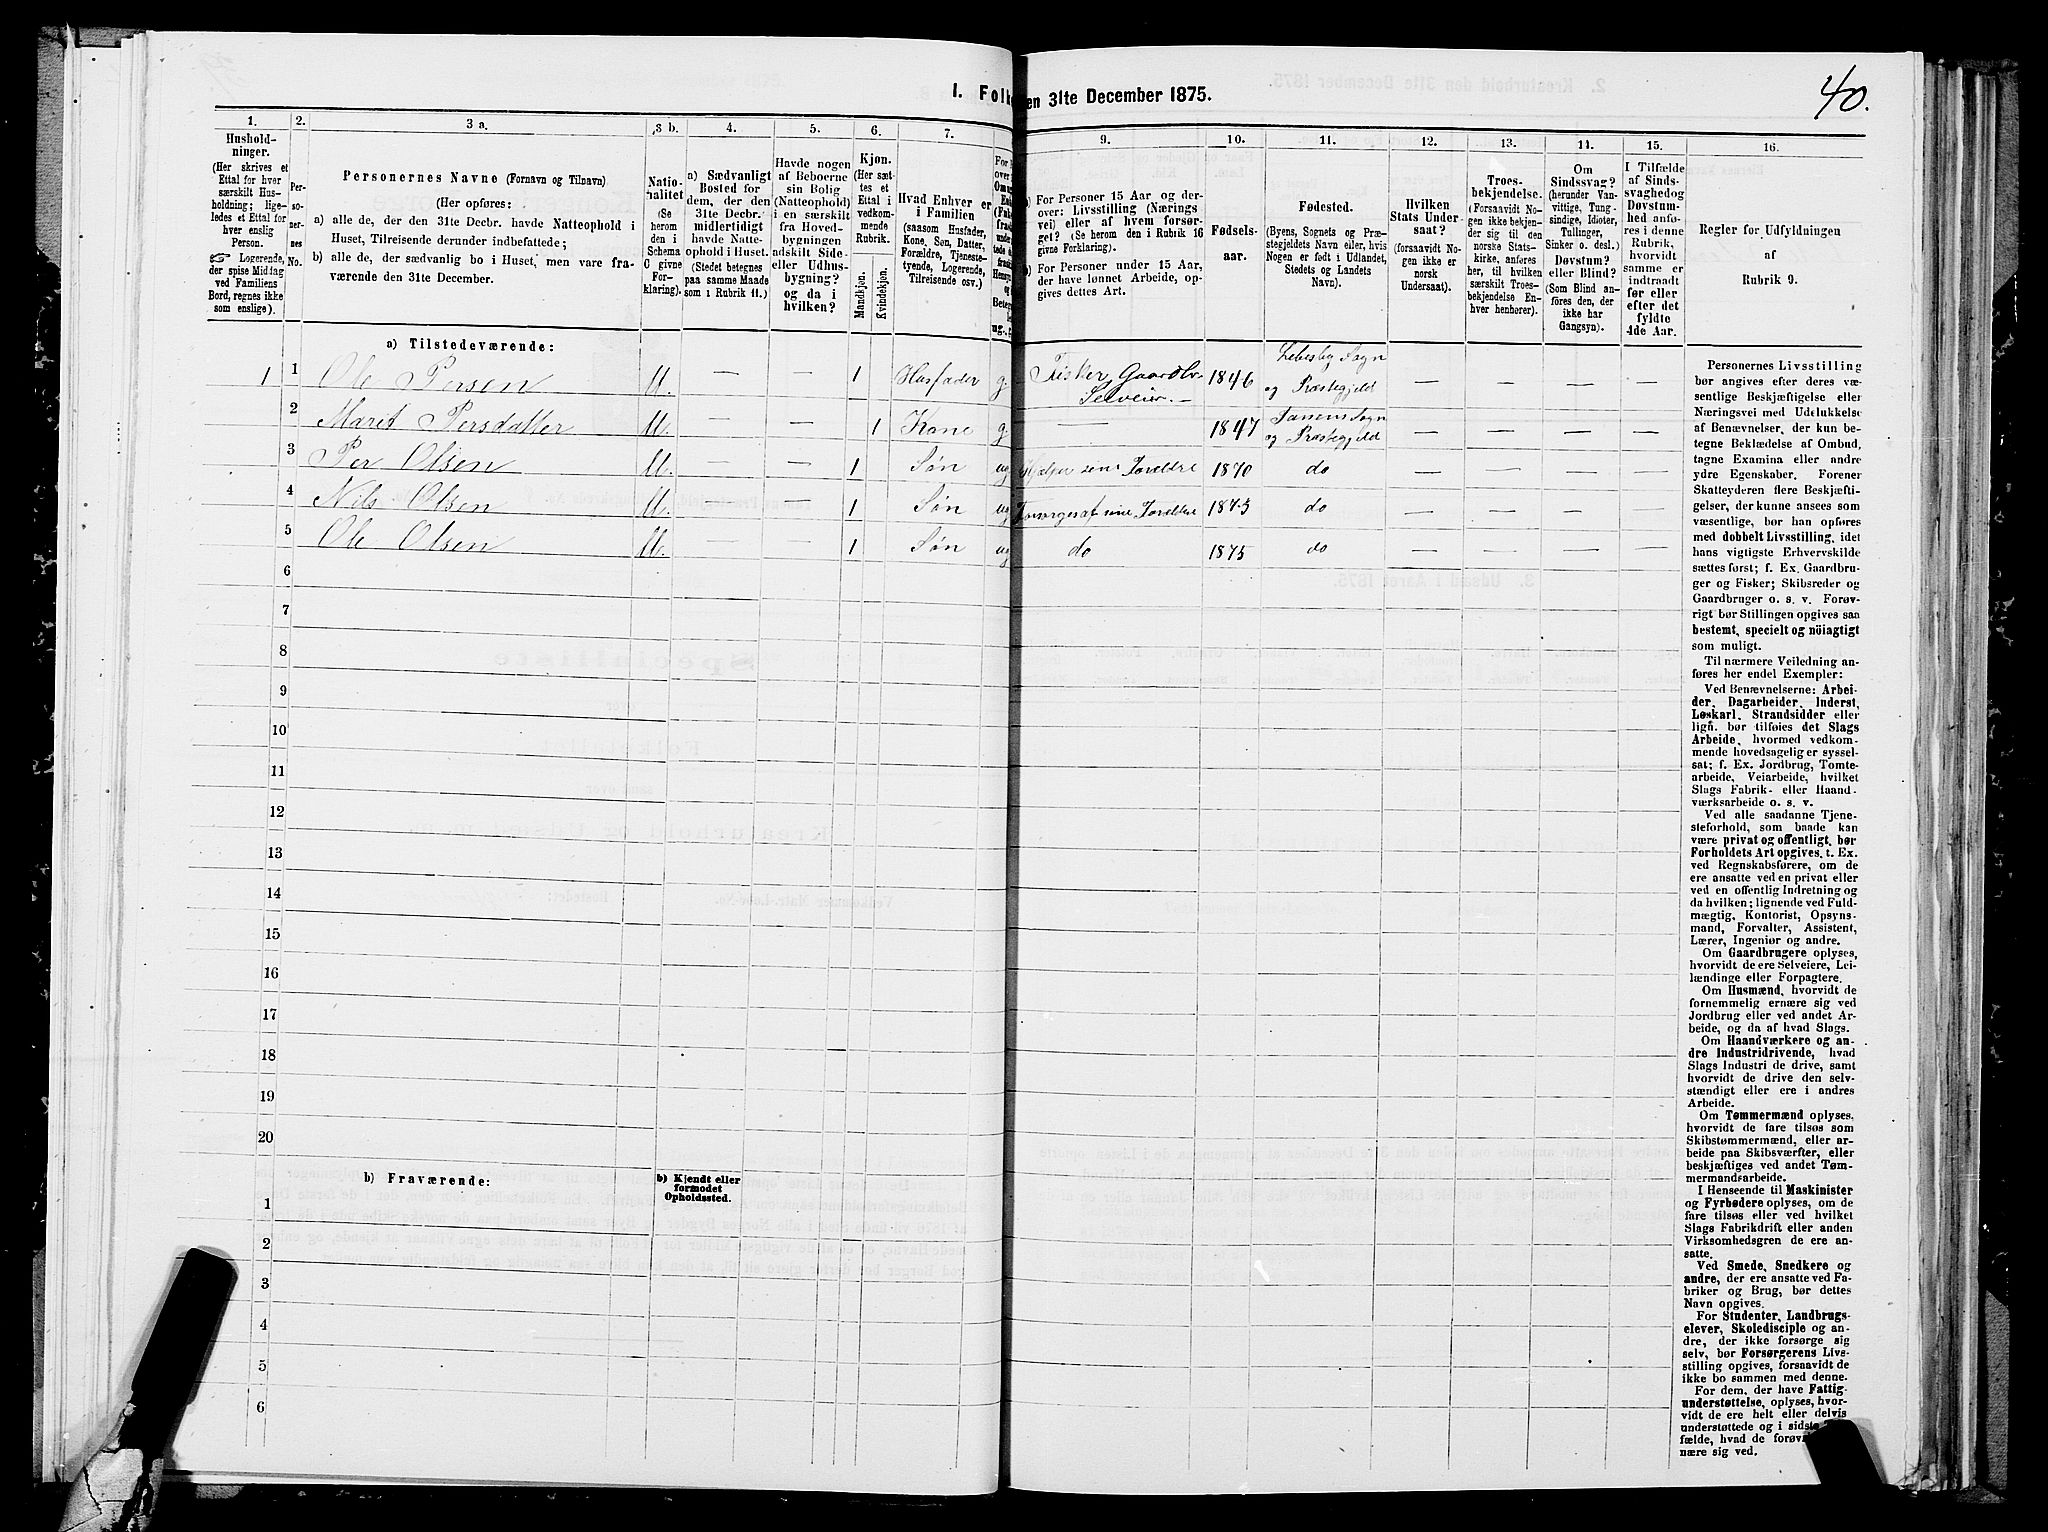 40.
I. Folk
en 31te December 1875.
1.
2.
3 a.
3 b.
4.
5.
6.
7.
9.
10.
11.
12.
13.
14.
15.
16.
Hushold-
ninger.
(Her skrives et
Ettal for hver
særskilt Hus-
holdning; lige-
ledes et Ettal for
hver enslig
Person.
☞ Logerende,
der spise Middag
ved Familiens
Bord, regnes ikke
som enslige).
Per-
so-
ner-
nes
No.
Personernes Navne (Fornavn og Tilnavn)
(Her opføres:
a) alle de, der den 31te Decbr. havde Natteophold i
Huset, Tilreisende derunder indbefattede;
b) alle de, der sædvanlig bo i Huset, men vare fra-
værende den 31te December.
Natio-
nalitet
(Se
herom
den i
Schema
C givne
For-
klaring).
a) Sædvanligt
Bosted for
dem, der den
31te Decbr.
midlertidigt
havde Natte-
ophold i Huset.
(Stedet betegnes
paa samme Maade
som i Rubrik 11.)
Havde nogen
af Beboerne
sin Bolig
(Natteophold)
i en særskilt
fra Hoved-
bygningen
adskilt Side-
eller Udhus-
bygning?
og da i
hvilken?
Kjøn.
(Her sæt-
tes et
Ettal i
vedkom-
mende
Rubrik.
Mandkjøn.
Kvindekjøn.
Hvad Enhver er
i Familien
(saasom Husfader,
Kone, Søn, Datter,
Forældre, Tjeneste-
tyende, Logerende,
Tilreisende osv.)
a) For Personer 15 Aar og der-
over: Livsstilling (Nærings
vei) eller af hvem forsør-
get? (Se herom den i Rubrik 16
givne Forklaring).
b) For Personer under 15 Aar,
der have lønnet Arbeide, op-
gives dettes Art.
Fødsels-
aar.
Fødested.
(Byens, Sognets og Præ-
stegjeldets Navn eller, hvis
Nogen er født i Udlandet,
Stedets og Landets
Navn).
Hvilken
Stats Under-
saat?
(forsaavidt No-
gen ikke er
norsk
Undersaat).
Troes-
bekjendelse.
(Forsaavidt No-
gen ikke bekjen-
der sig til den
norske Stats-
kirke, anføres
her, til hvilken
særskilt Troes-
bekjendelse En-
hver henhører).
Om
Sindssvag?
(herunder Van-
vittige, Tung-
sindige, Idioter,
Tullinger,
Sinker o. desl.)
Døvstum?
eller Blind?
(Som Blind an-
føres den, der
ikke har
Gangsyn).
I Tilfælde
af Sinds-
svaghed og
Døvstum-
hed anfø-
res i denne
Rubrik,
hvorvidt
samme er
indtraadt
før eller
efter det
fyldte
4de Aar.
Regler for Udfyldningen
af
Rubrik 9.
a) Tilstedeværende:
1 1 Ole Persen M. — — 1 Husfader g Fisker, Gaardbr. Selveier. — 1846 Lebesby Sogn og Præstegjeld — — — —
2 Marit Persdatter M. — — 1 Kone g — 1847 Tanens Sogn og Præstegjeld — — — —
3 Per Olsen M. — — 1 Søn ug Hjelper sine Foreldre 1870 do — — — —
4 Nils Olsen M. — — 1 Søn ug Forsørges af sine Foreldre 1873 do — — — —
5 Ole Olsen M. — — 1 Søn ug do 1875 do — — — —
6
7
8
9
10
11
12
13
14
15
16
17
18
19
20
b) Fraværende:
b) Kjendt eller
formodet
Opholdssted.
1
2
3
4
5
6
Personernes Livsstilling
bør angives efter deres væ-
sentlige Beskjæftigelse eller
Næringsvei med Udelukkelse
af Benævnelser, der kun be-
tegne Beklædelse af Ombud,
tagne Examina eller andre
ydre Egenskaber. Forener
Skatteyderen flere Beskjæfti-
gelser, der kunne ansees som
væsentlige, bør han opføres
med dobbelt Livsstilling, idet
hans vigtigste Erhvervskilde
sættes først; f. Ex. Gaardbru-
ger og Fisker; Skibsreder og
Gaardbruger o. s. v. Forøv-
rigt bør Stillingen opgives saa
bestemt, specielt og nöiagtigt
som muligt.
Til nærmere Veiledning an-
føres her endel Exempler:
Ved Benævnelserne: Arbei-
der, Dagarbeider, Inderst,
Løskarl, Strandsidder eller
lign. bør tilføies det Slags
Arbeide, hvormed vedkom-
mende hovedsagelig er syssel-
sat; f. Ex. Jordbrug, Tomte-
arbeide, Veiarbeide, hvilket
Slags Fabrik- eller Haand-
værksarbeide o. s. v.
Ved alle saadanne Tjene-
steforhold, som baade kan
være privat og offentligt, bør
Forholdets Art opgives, t. Ex.
ved Regnskabsførere, om de
ere ansatte ved en privat eller
ved en offentlig Indretning og
da hvilken; lignende ved Fuld-
mægtig, Kontorist, Opsyns-
mand, Forvalter, Assistent,
Lærer, Ingeniør og andre.
Om Gaardbrugere oplyses,
hvorvidt de ere Selveiere, Lei-
lændinge eller Forpagtere.
Om Husmænd, hvorvidt de
fornemmelig ernære sig ved
Jordbrug eller ved andet Ar-
beide, og da af hvad Slags.
Om Haandværkere og an-
dre Industridrivende, hvad
Slags Industri de drive, samt
hvorvidt de drive den selv-
stændigt eller ere i andres
Arbeide.
Om Tømmermænd oplyses,
hvorvidt de fare tilsøs som
Skibstømmermænd, eller ar-
beide paa Skibsværfter, eller
beskjæftiges ved andet Tøm-
mermandsarbeide.
I Henseende til Maskinister
og Fyrbødere oplyses, om de
fare tilsøs eller ved hvilket
Slags Fabrikdrift eller anden
Virksomhedsgren de ere an-
satte.
Ved Smede, Snedkere og
andre, der ere ansatte ved Fa-
briker og Brug, bør dettes
Navn opgives.
For Studenter, Landbrugs-
elever, Skoledisciple og an-
dre, der ikke forsørge sig
selv, bør Forsørgerens Livs-
stilling opgives, forsaavidt de
ikke bo sammen med denne.
For dem, der have Fattig-
understøttelse, oplyses, hvor-
vidt de ere helt eller delvis
understøttede og i sidste
fælde, hvad de forøv
nære sig ved.